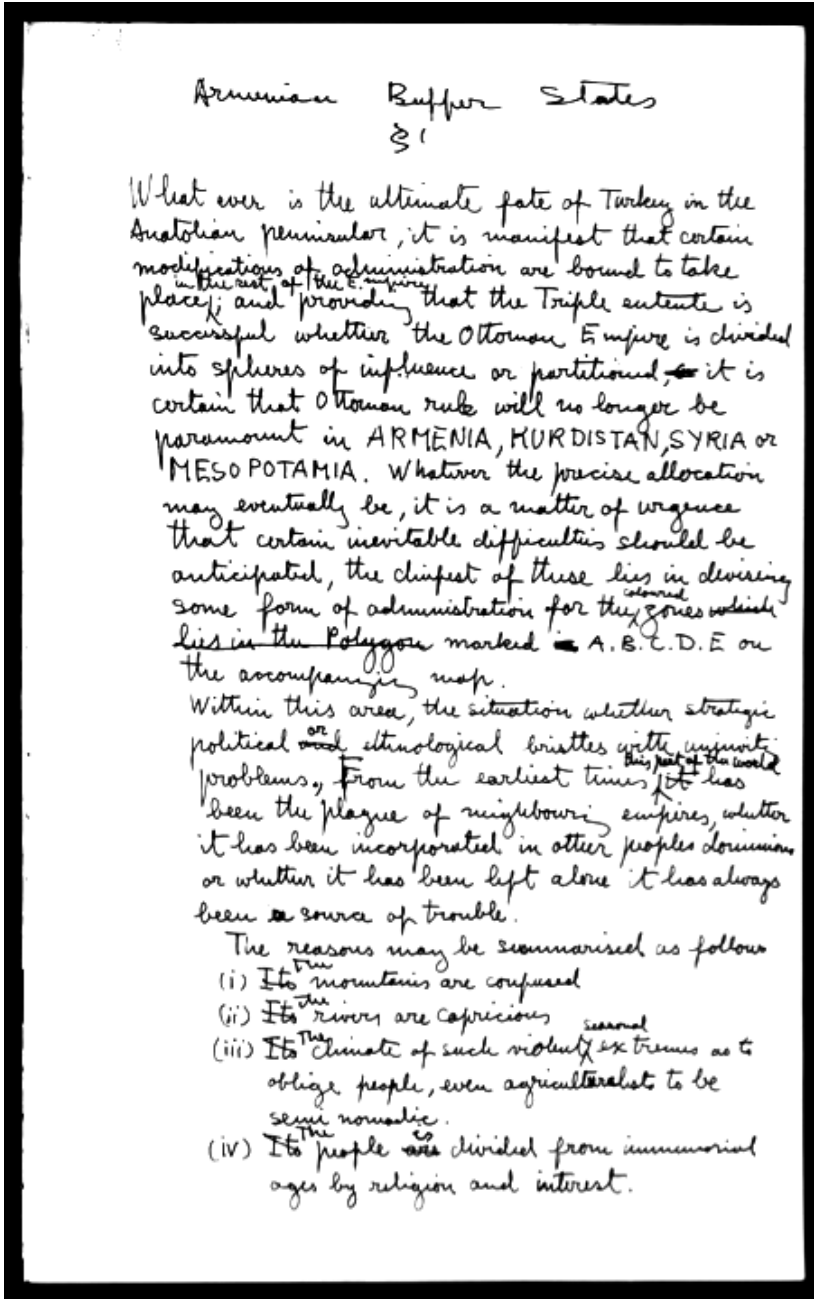 Armenian Buffer States
§ 1
What ever is the ultimate fate of Turkey in the
Anatolian peninsular, it is manifest that certain
modifications of administration are bound to take
in the rest of the E. empire
place; and providing that the Triple entente is
successful whether the Ottoman Empire is divided
into spheres of influence or partitioned, it is
certain that Ottoman rule will no longer be
paramount in ARMENIA, KURDISTAN, SYRIA or
MESOPOTAMIA. Whatever the precise allocation
may eventually be, it is a matter of urgence
that certain inevitable difficulties should be
anticipated, the chiefest of these lies in devising
coloured
some form of administration for the zones which
lies in the Polygon marked A.B.C.D.E on
the accompanying map.
Within this area, the situation whether strategic
or
political and ethnological bristles with
this part of the world
problems., From the earliest times it has
been the plague of neighbouring empires, whether
it has been incorporated in other peoples dominions
or whether it has been left alone it has always
been a source of trouble.
The reasons may be summarised as follows
The
(i) Its mountains are confused
the
(ii) Its rivers are capricious
The seasonal
(iii) Its climate of such violent extremes as to
oblige people, even agriculturalists to be
semi nomadic.
The is
(iv) Its people are divided from immemorial
ages by religion and interest.